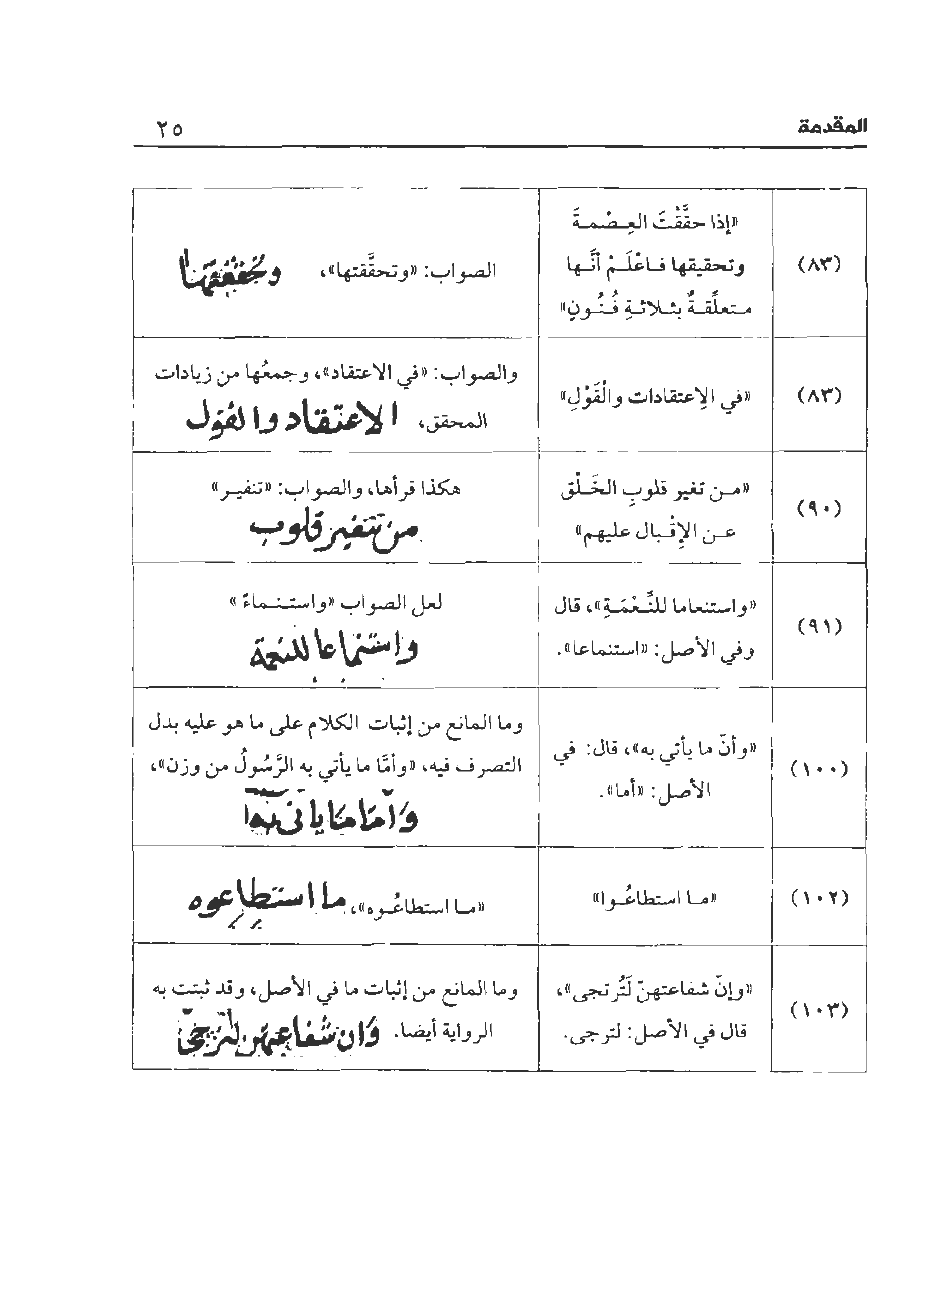 المقدمة
٢٥
(٨٣)
«إذا حقَّقْتَ العِصْمةَ
وتحقيقها فاعْلَمْ أنَّها
متعلِّقةٌ بثلاثةِ فُنُونٍ»
الصواب: «وتحقَّقتها»، وتحققتها
(٨٣)
«في الاِعتقادات والْقَوْلِ»
والصواب: «في الاعتقاد»، وجمعُها من زيادات
المحقق، الاعتقاد والقول
(٩٠)
«من تغير قلوبِ الخَلْق
عن الإِقْبال عليهم»
هكذا قرأها، والصواب: «تنفير»
من تنفير قلوب
(٩١)
«واستنعاما للنِّعْمَةِ»، قال
وفي الأصل: «استنماعا».
لعل الصواب «واستنماءً»
واستنماعا للنعمة
(١٠٠)
«وأنّ ما يأتي به»، قال: في
الأصل: «أما».
وما المانع من إثبات الكلام على ما هو عليه بدل
التصرف فيه، «وأمَّا ما يأتي به الرَّسُولُ من وزن»،
وَأمّا مَا ياتى به
(١٠٢)
«ما استطاعُوا»
«ما استطاعُوه»، ما استطاعوه
(١٠٣)
«وإنّ شفاعتهنّ لَتُرتجى»،
قال في الأصل: لترجى.
وما المانع من إثبات ما في الأصل، وقد ثبتت به
الرواية أيضا. وَان شفاعتهن لتُرجَى